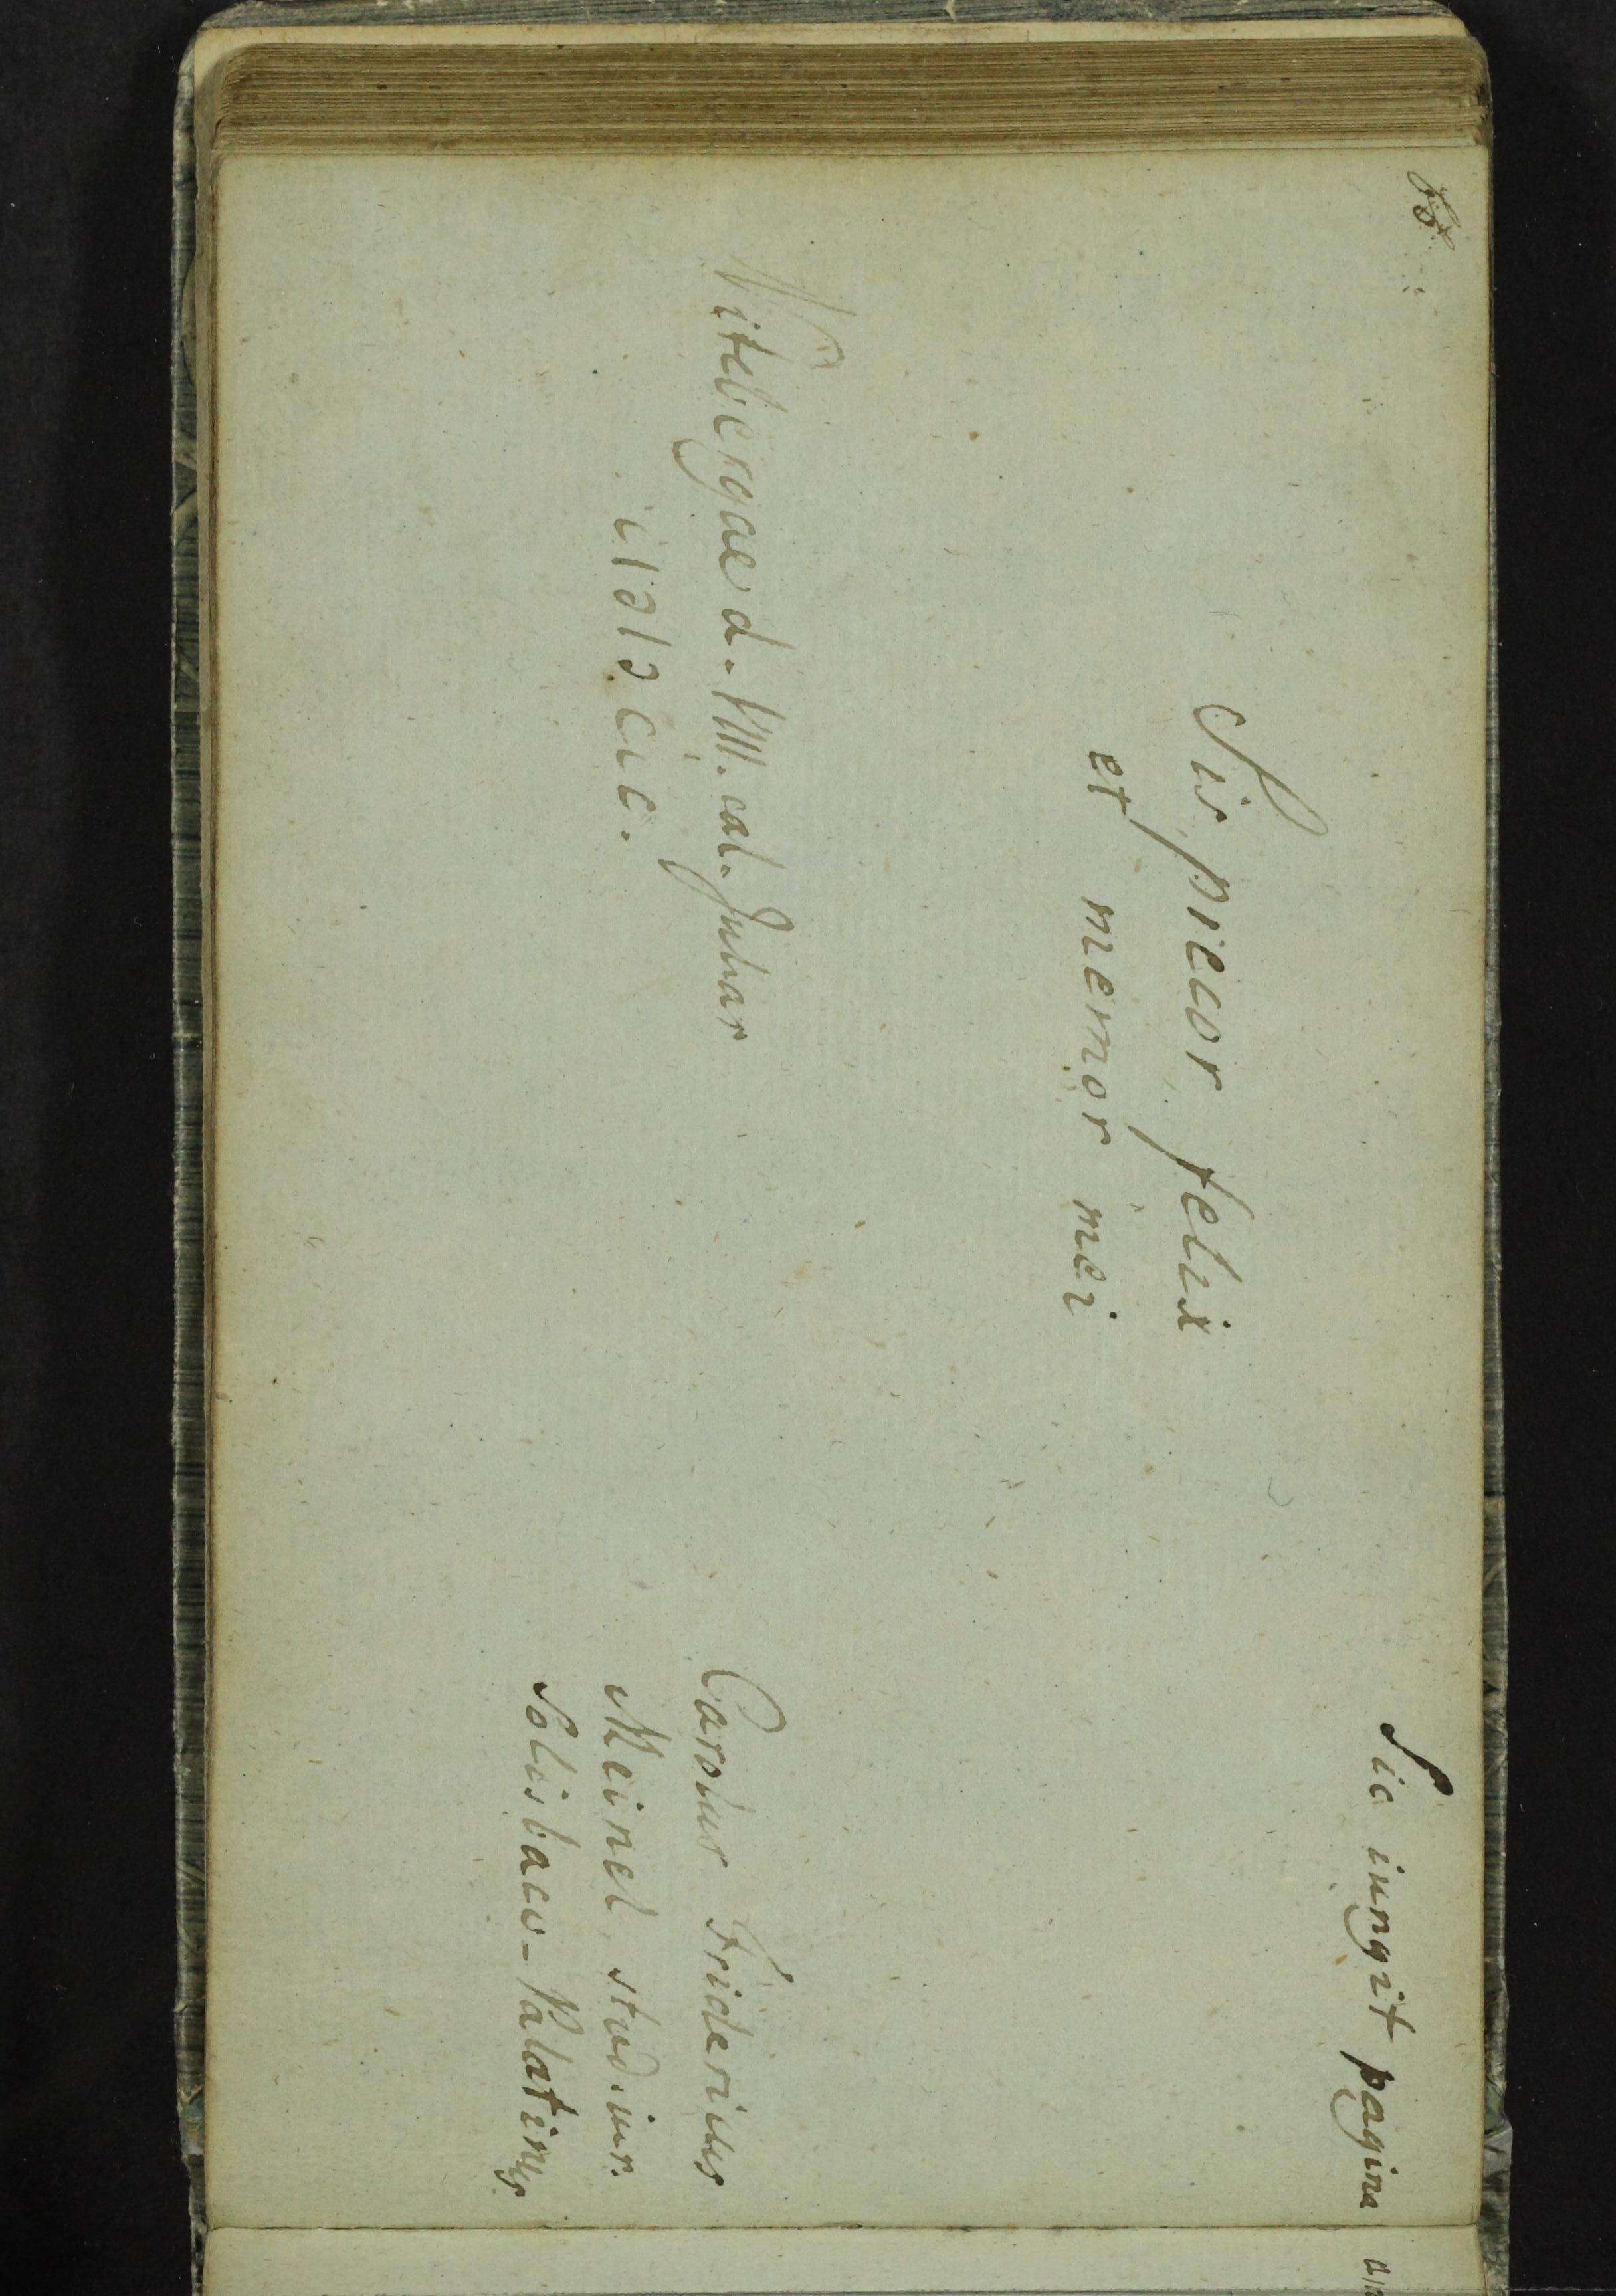 Sic iungit pagina
Sis precor felix
et memor mei
Vitebergae d. VIII. cal. Julias
CIƆIƆCCIC.
Carolus Fridericus
Meinel, stud. iur.
Solisbaco-Palatinus